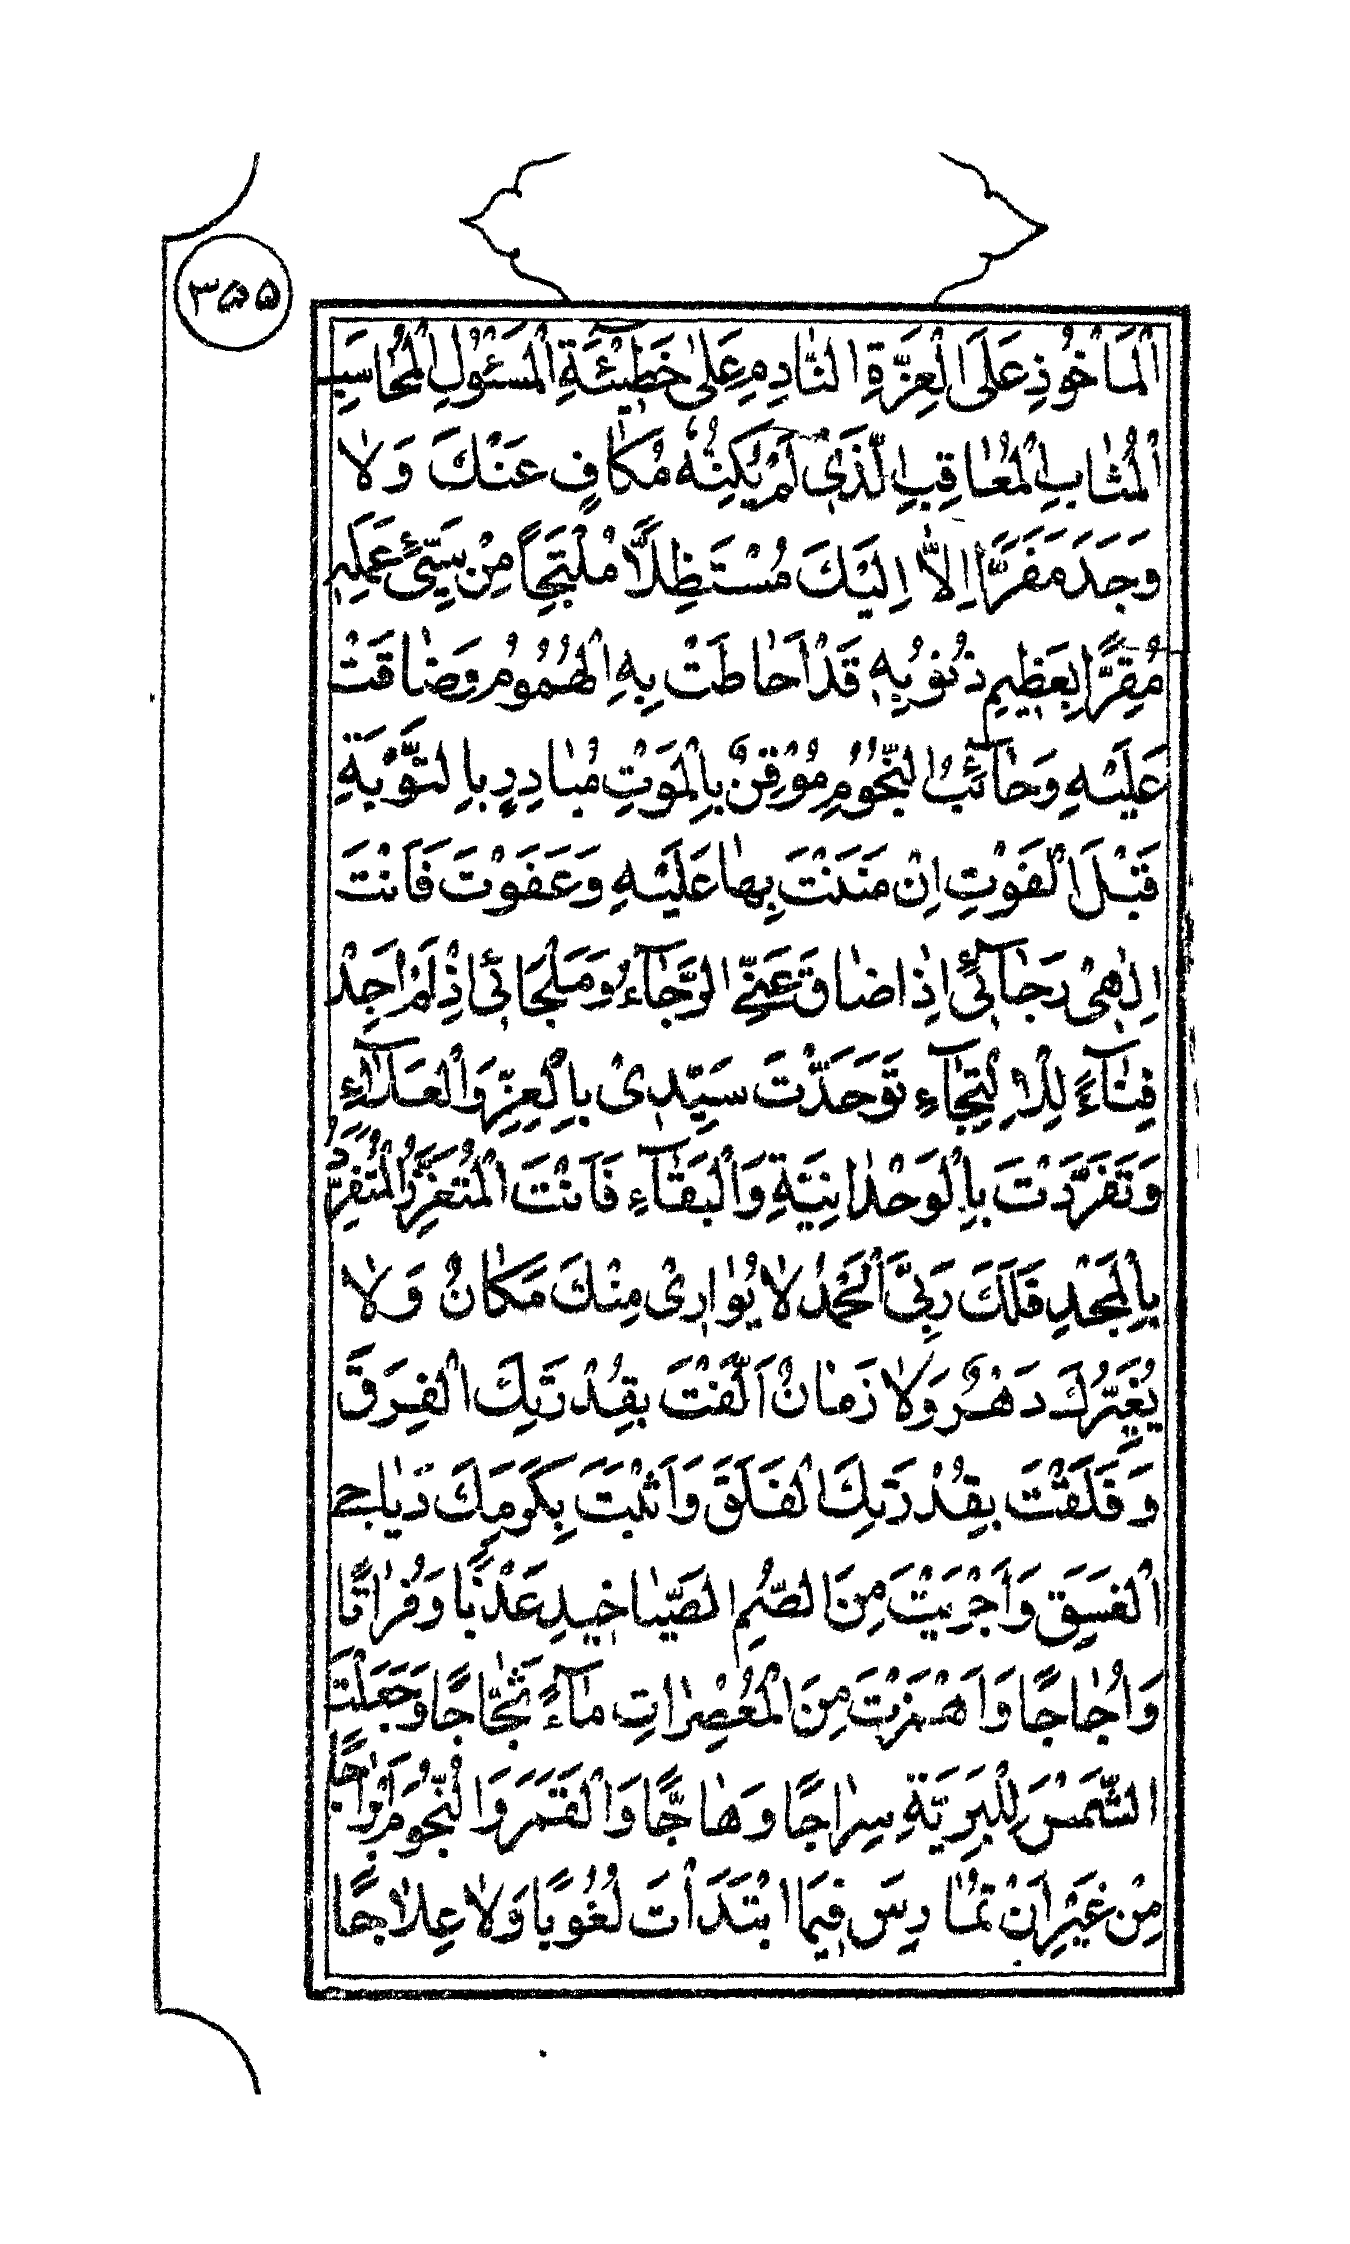 ۳۵۵
اَلْمَاْخُوْذِ عَلَى الْعِزَّةِ النَّادِمِ عَلٰى خَطِيْٓئَةِ الْمَسْئُوْلِ الْمُحَاسَبِ
الْمُثَابِ الْمُعَاقِبِ الَّذِىْ لَمْ يُكِنُّهٗ مَكَافٍ عَنْكَ وَلَا
وَجَدَ مَفَرًّا اِلَّا اِلَيْكَ مُسْتَظِلًّا مُلْتَجِاً مِنْ سَيِّئِ عَمَلِهٖ
مُقِرًّا بِعَظِيْمِ ذُنُوْبِهٖ قَدْ اَحَاطَتْ بِهِ الْهُمُوْمُ وَضَاقَتْ
عَلَيْهِ وَحَآئِبُ النُّجُوْمِ مُوْقِنٌ بِالْمَوْتِ مُبَادِرٍ بِالتَّوْبَةِ
قَبْلَ الْفَوْتِ اِنْ مَنَنْتَ بِهَا عَلَيْهِ وَعَفَوْتَ فَاَنْتَ
اِلٰهِىْ رَجَآئِىْ اِذَا ضَاقَ عَنِّى الرَّجَآءُ وَمَلْجَائِىْ اِذْ لَمْ اَجِدْ
فِنَآءً لِلْاِلْتِجَآءِ تَوَحَّدْتَ سَيِّدِىْ بِالْعِزِّ وَالْعَلَآءِ
وَتَفَرَّدْتَ بِالْوَحْدَانِيَّةِ وَالْبَقَآءِ فَاَنْتَ الْمُتَعَزِّزُ الْمُتَفَرِّدُ
بِالْمَجْدِ فَلَكَ رَبِّىَ الْحَمْدُ لَا يُوَارِىْ مِنْكَ مَكَانٌ وَلَا
يُغَيِّرُكَ دَهْرٌ وَلَا زَمَانٌ اَلَّفْتَ بِقُدْرَتِكَ الْفِرَقَ
وَفَلَقْتَ بِقُدْرَتِكَ الْفَلَقَ وَاَثْبَتَّ بِكَرَمِكَ دَيَاجِى
الْغَسَقِ وَاَجْرَيْتَ مِنَ الصُّمِ الصَّيَاخِيْدِ عَذْبًا وَفُرَاتًا
وَاُجَاجًا وَاَهْمَرْتَ مِنَ الْمُعْصِرَاتِ مَآءً ثَجَّاجًا وَجَعَلْتَ
الشَّمْسَ لِلْبَرِيَّةِ سِرَاجًا وَهَّاجًا وَالْقَمَرَ وَالنُّجُوْمَ اَبْرَاجًا
مِنْ غَيْرِ اَنْ تُمَارِسَ فِيْمَا ابْتَدَاْتَ لُغُوْبًا وَلَا عِلَاجًا